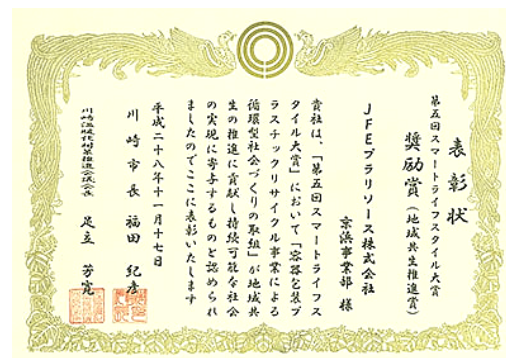 表彰状
第五回スマートライフスタイル大賞
奨励賞（地域共生推進賞）
ＪＦＥプラリソース株式会社
京浜事業部 様
貴社は、「第五回スマートライフス
タイル大賞」において「容器包装プ
ラスチックリサイクル事業による
循環型社会づくりの取組」が地域共
生の推進に貢献し持続可能な社会
の実現に寄与するものと認められ
ましたのでここに表彰いたします
平成二十八年十一月十七日
川崎市長 福田 紀彦
川崎温暖化対策推進会議会長 足立 芳寛